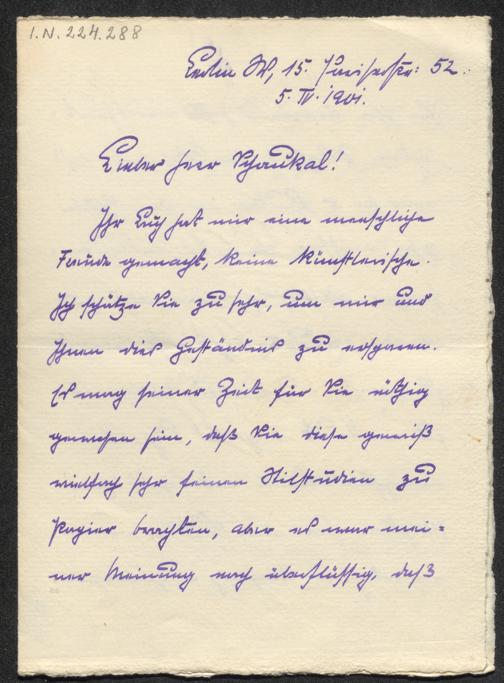 I.N. 224.288
Berlin W, 15. 52.
5. IV. 1901.
Lieber Herr Schaukal!
Ihr Buch hat mir eine menschliche
Freude gemacht, keine künstlerische.
Ich schätze Sie zu sehr, um mir und
Ihnen dies Geständnis zu ersparen.
Es mag seiner Zeit für Sie nötig
gewesen sein, daß Sie diese gewiß
vielfach sehr feinen Stilstudien zu
Papier brachten, aber es war mei=
ner Meinung nach überflüssig, daß